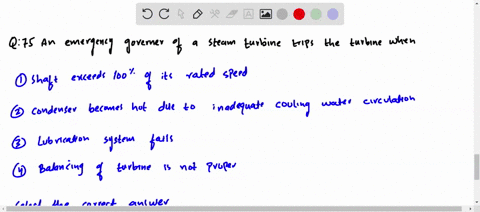 Q:75 An emergency governer of a steam turbine trips the turbine when
① Shaft exceeds 100% of its rated speed
② Condenser becomes hot due to inadequate cooling water circulation
③ Lubrication system fails
④ Balancing of turbine is not proper
Select the correct answer